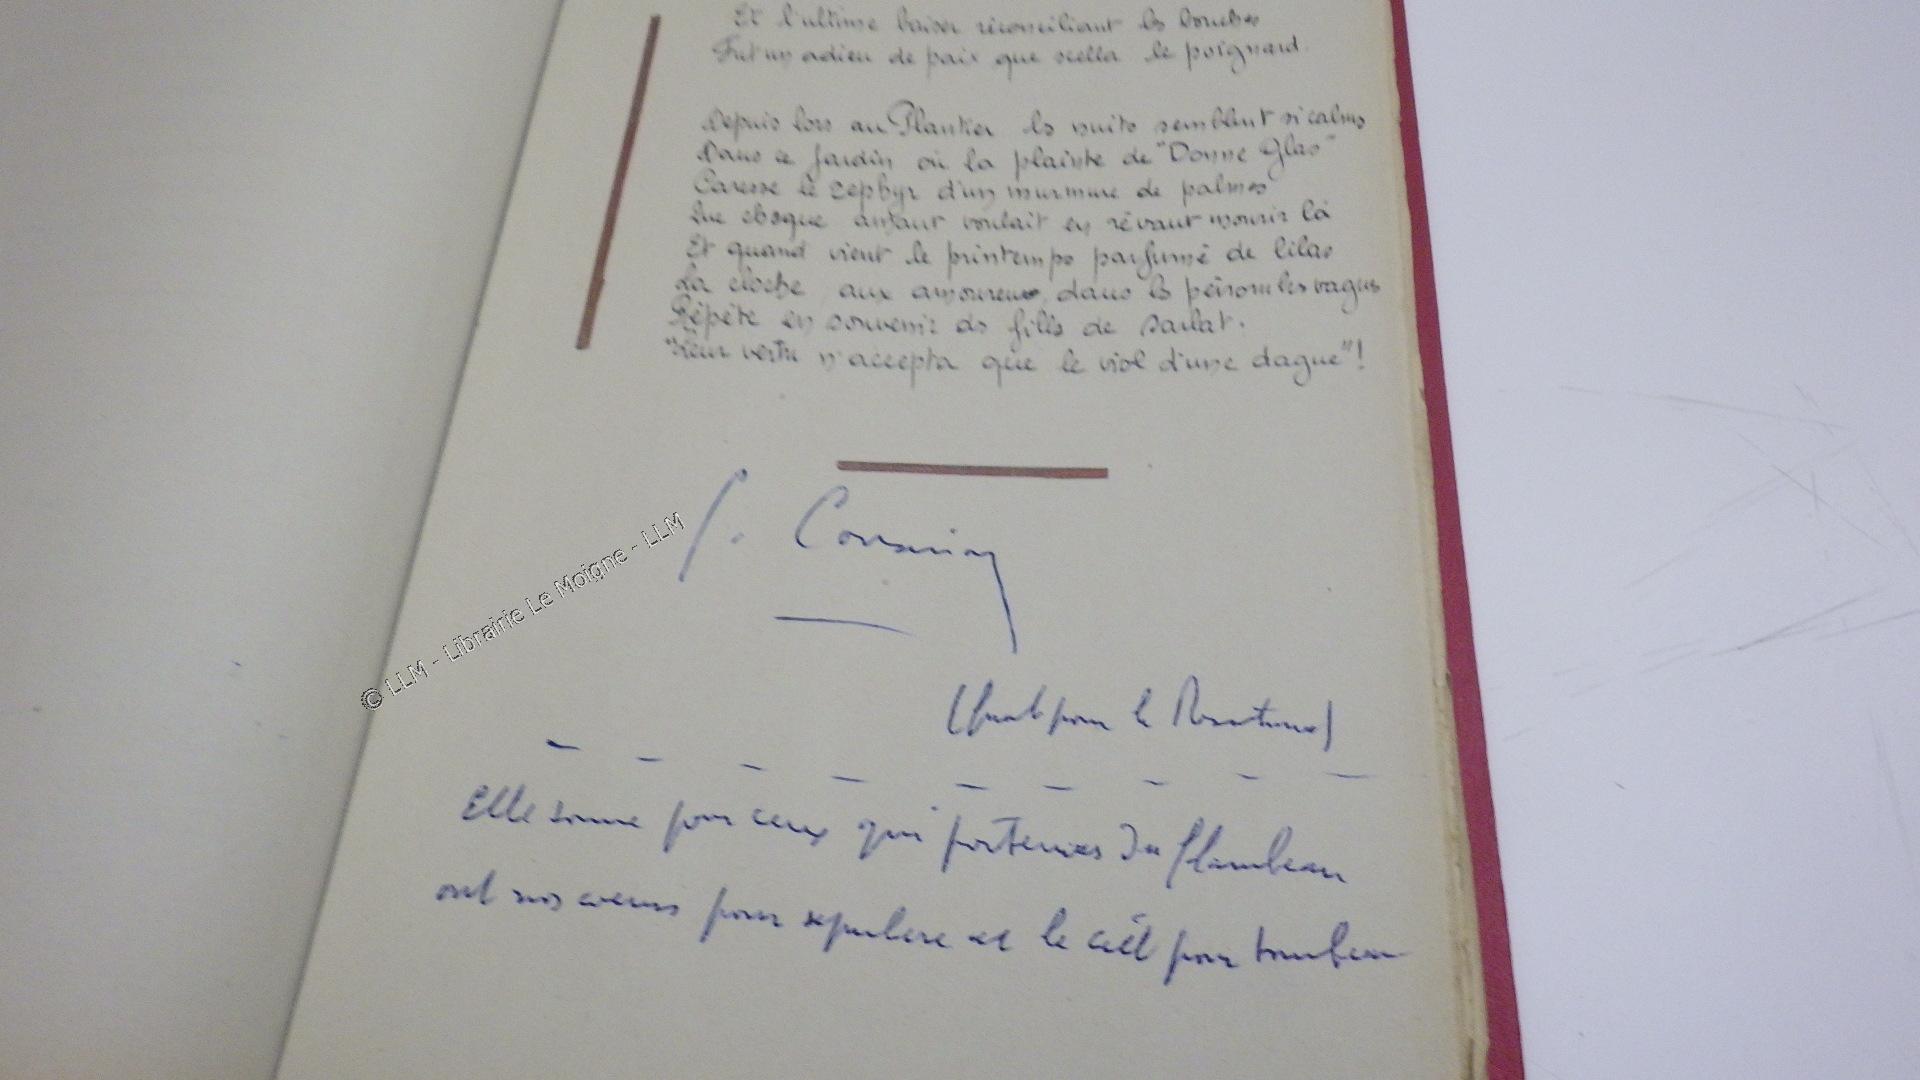 Et l'ultime baiser réconciliant les bouches
Fut un adieu de paix que scella le poignard.
Depuis lors au Plantier les nuits semblent si calmes
Dans ce jardin où la plainte de "Donne Glas"
Caresse le zéphyr d'un murmure de palmes
Que chaque amant voulait en rêvant mourir là
Et quand vient le printemps parfumé de lilas
La cloche aux amoureux, dans les
Répète en souvenir des filles de Sarlat.
"Leur vertu n'accepta que le viol d'une dague"!
(
Elle sonne pour ceux qui porteurs du flambeau
ont nos cœurs pour sépulcre et le ciel pour tombeau
© LLM - Librairie Le Moigne - LLM